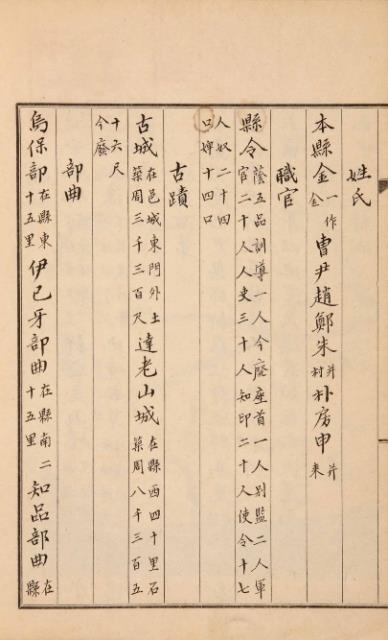 姓氏
本縣金一作仝曹尹趙鄭朱并村朴房申并来
職官
縣令蔭五品訓導一人今廢座首一人别監二人軍
官二十人人吏三十人知印二十人使令十七
人奴二十四
口婢十四口
古蹟
古城在邑城東門外土築周三千三百尺達老山城在縣西四十里石築周八千三百五
十六尺
今廢
部曲
烏保部在縣東十五里伊已牙部曲在縣南二十五里知品部曲在縣